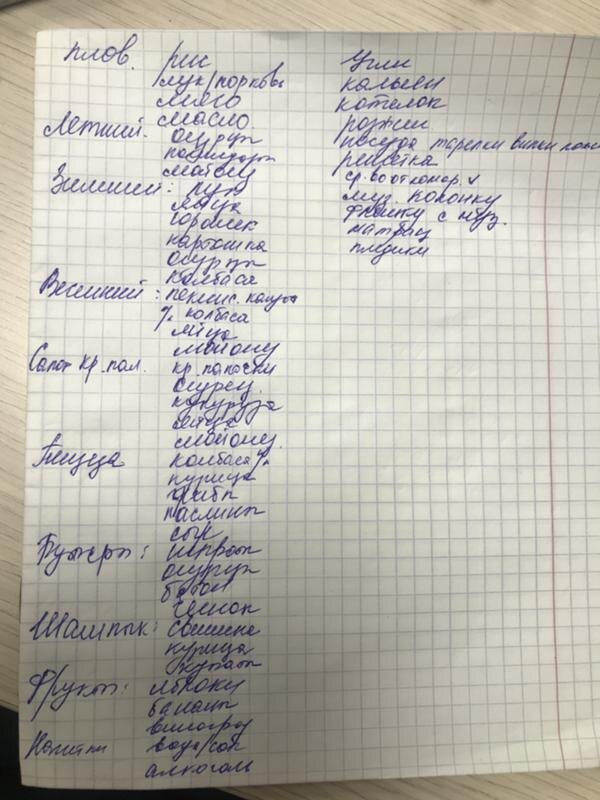 плов. рис
лук/морковь
мясо
масло
Летний. огурцы
помидоры
майонез
Зимний: лук
яйца
горошек
картошка
огурцы
колбаса
Весенний: пекинс. капуста
колбаса
яйца
майонез
Салат кр. пал. кр. палочки
огурец
кукуруза
яйца
майонез.
Пицца колбаса
курица
грибы
маслины
сыр
Бутеры: шпроты
огурцы
батон
чеснок
Шашлык: свинина
курица
купаты
Фрукты: яблоки
бананы
виноград
Напитки вода/сок
алкоголь
Угли
кальян
котелок
розжиг
посуда тарелки вилки
решётка
ср. во от комар. v
муз. колонку
флешку с муз.
матрац
пледики